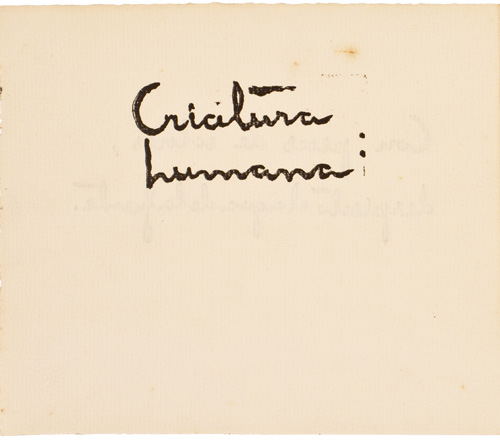 Criatura
humana: